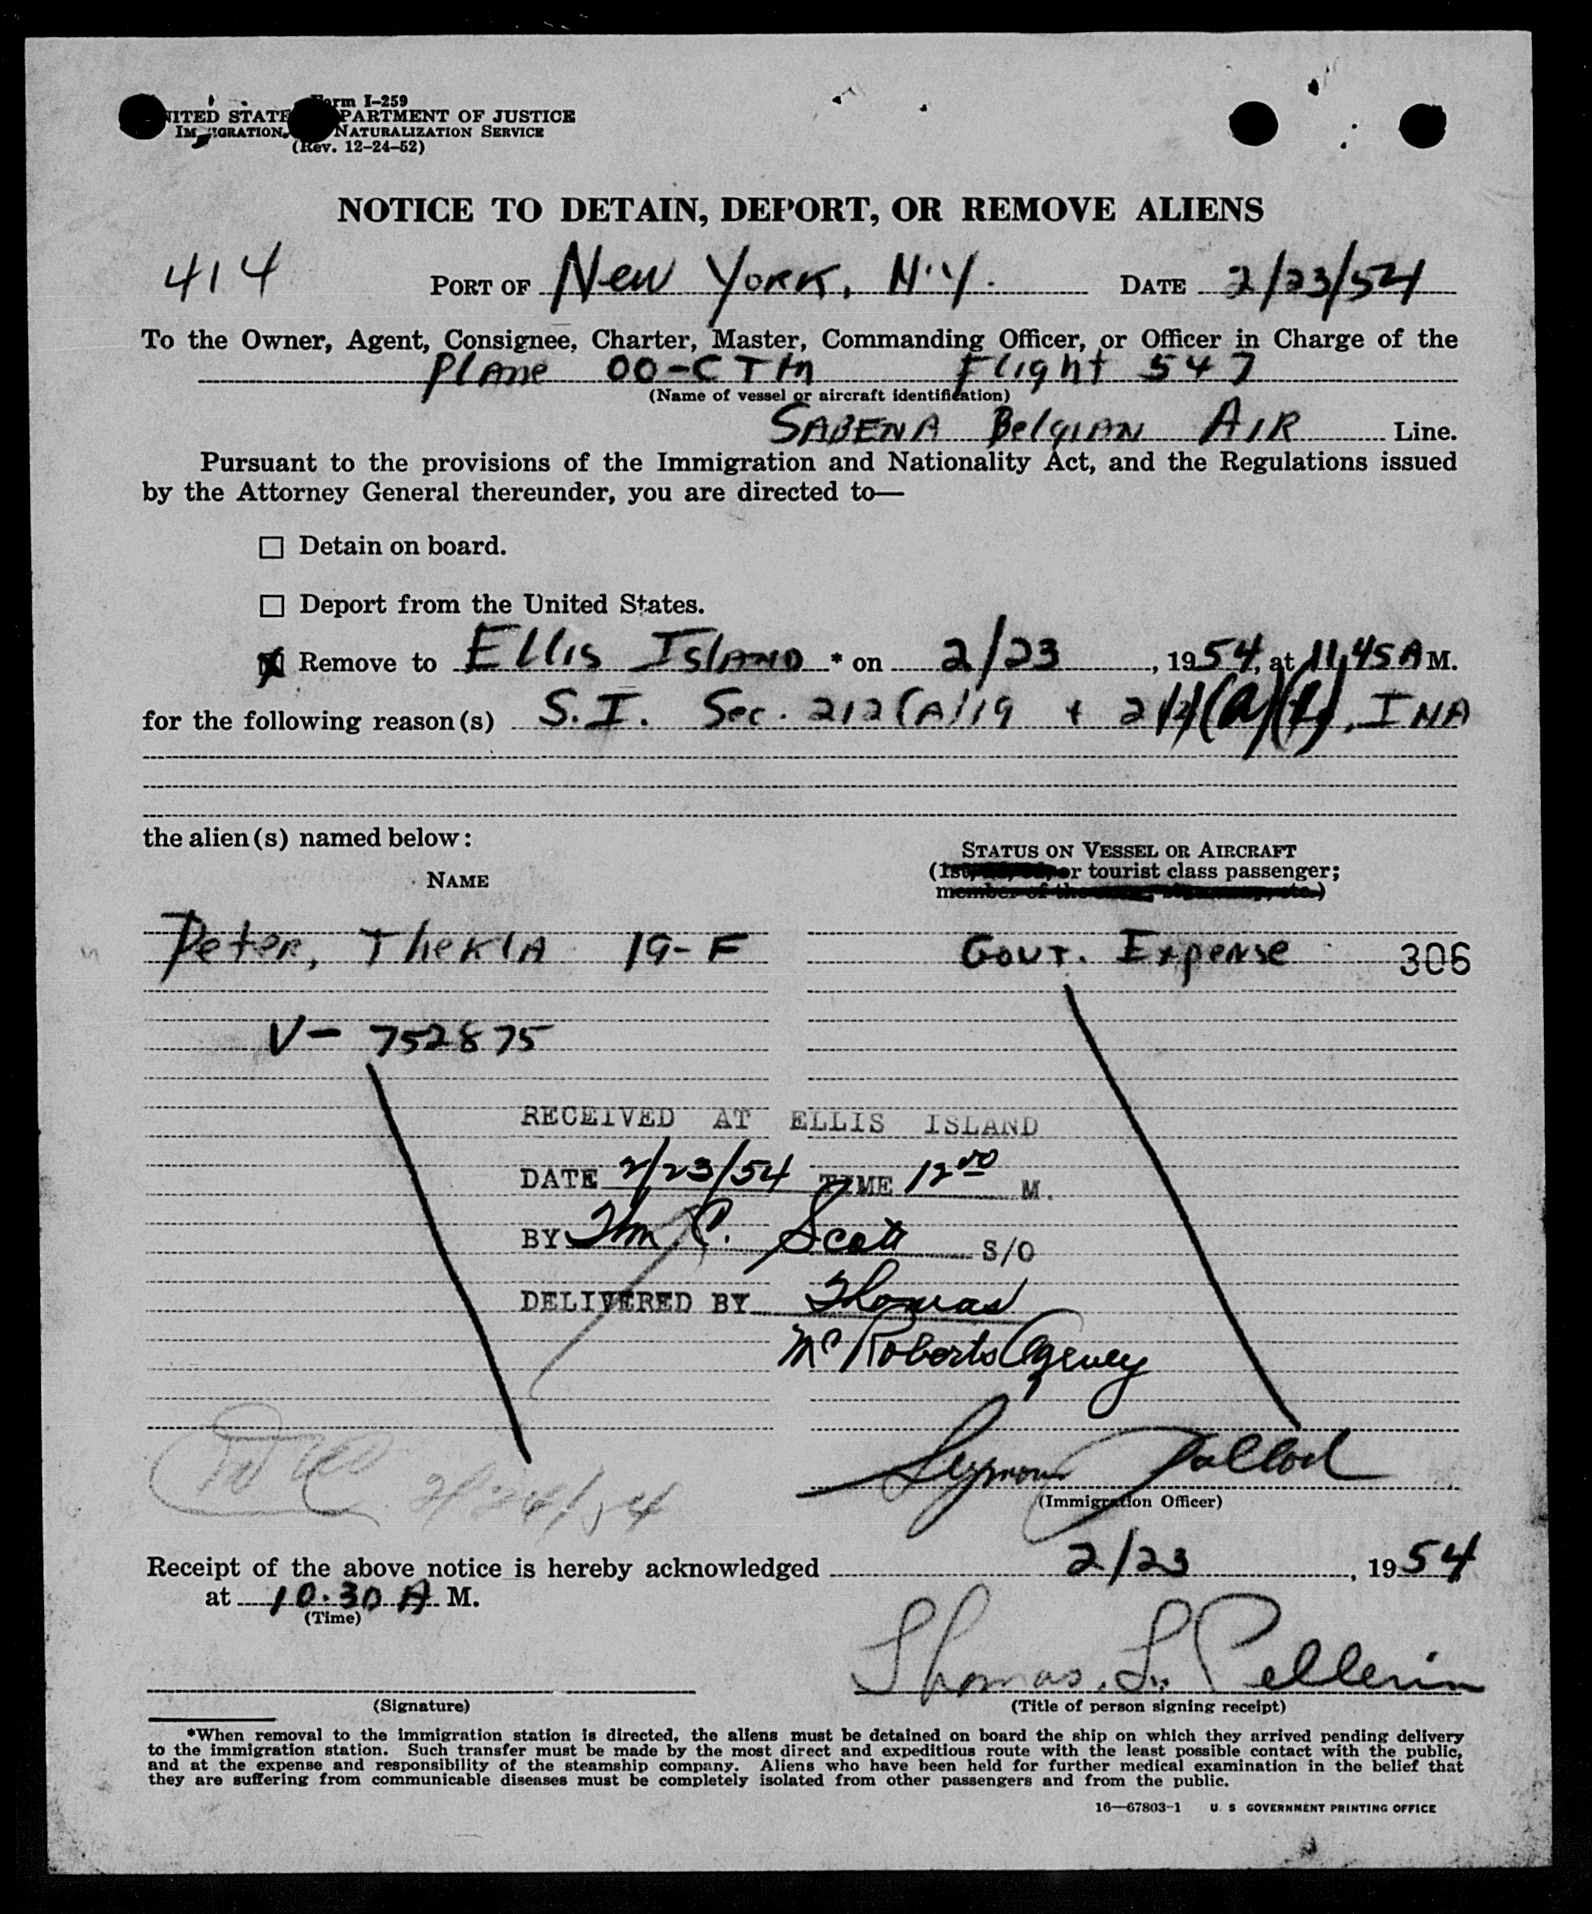 Form I-259
UNITED STATES DEPARTMENT OF JUSTICE
IMMIGRATION NATURALIZATION SERVICE
(Rev. 12-24-52)
NOTICE TO DETAIN, DEPORT, OR REMOVE ALIENS
414 PORT OF New York, N.Y. DATE 2/23/54
To the Owner, Agent, Consignee, Charter, Master, Commanding Officer, or Officer in Charge of the
Plane OO-CTM Flight 547
(Name of vessel or aircraft identification)
SABENA Belgian AIR Line.
Pursuant to the provisions of the Immigration and Nationality Act, and the Regulations issued
by the Attorney General thereunder, you are directed to—
☐ Detain on board.
☐ Deport from the United States.
☒ Remove to Ellis Island * on 2/23, 1954, at 11.45 A M.
for the following reason(s) S.I. Sec. 212(A)19 + INA
the alien(s) named below:
STATUS ON VESSEL OR AIRCRAFT
(1st, or tourist class passenger;
member of the etc.)
NAME
Peter, Thekla 19-F Govt. Expense 306
V- 752875
RECEIVED AT ELLIS ISLAND
DATE 2/23/54 TIME 12 00 M.
BY C. Scott S/O
DELIVERED BY Thomas
McRoberts Agency
Seymour
(Immigration Officer)
2/24/54
Receipt of the above notice is hereby acknowledged 2/23, 1954
at 10.30 A M.
(Time)
Thomas L. Pellerin
(Signature) (Title of person signing receipt)
*When removal to the immigration station is directed, the aliens must be detained on board the ship on which they arrived pending delivery
to the immigration station. Such transfer must be made by the most direct and expeditious route with the least possible contact with the public,
and at the expense and responsibility of the steamship company. Aliens who have been held for further medical examination in the belief that
they are suffering from communicable diseases must be completely isolated from other passengers and from the public.
16—67803-1 U. S GOVERNMENT PRINTING OFFICE